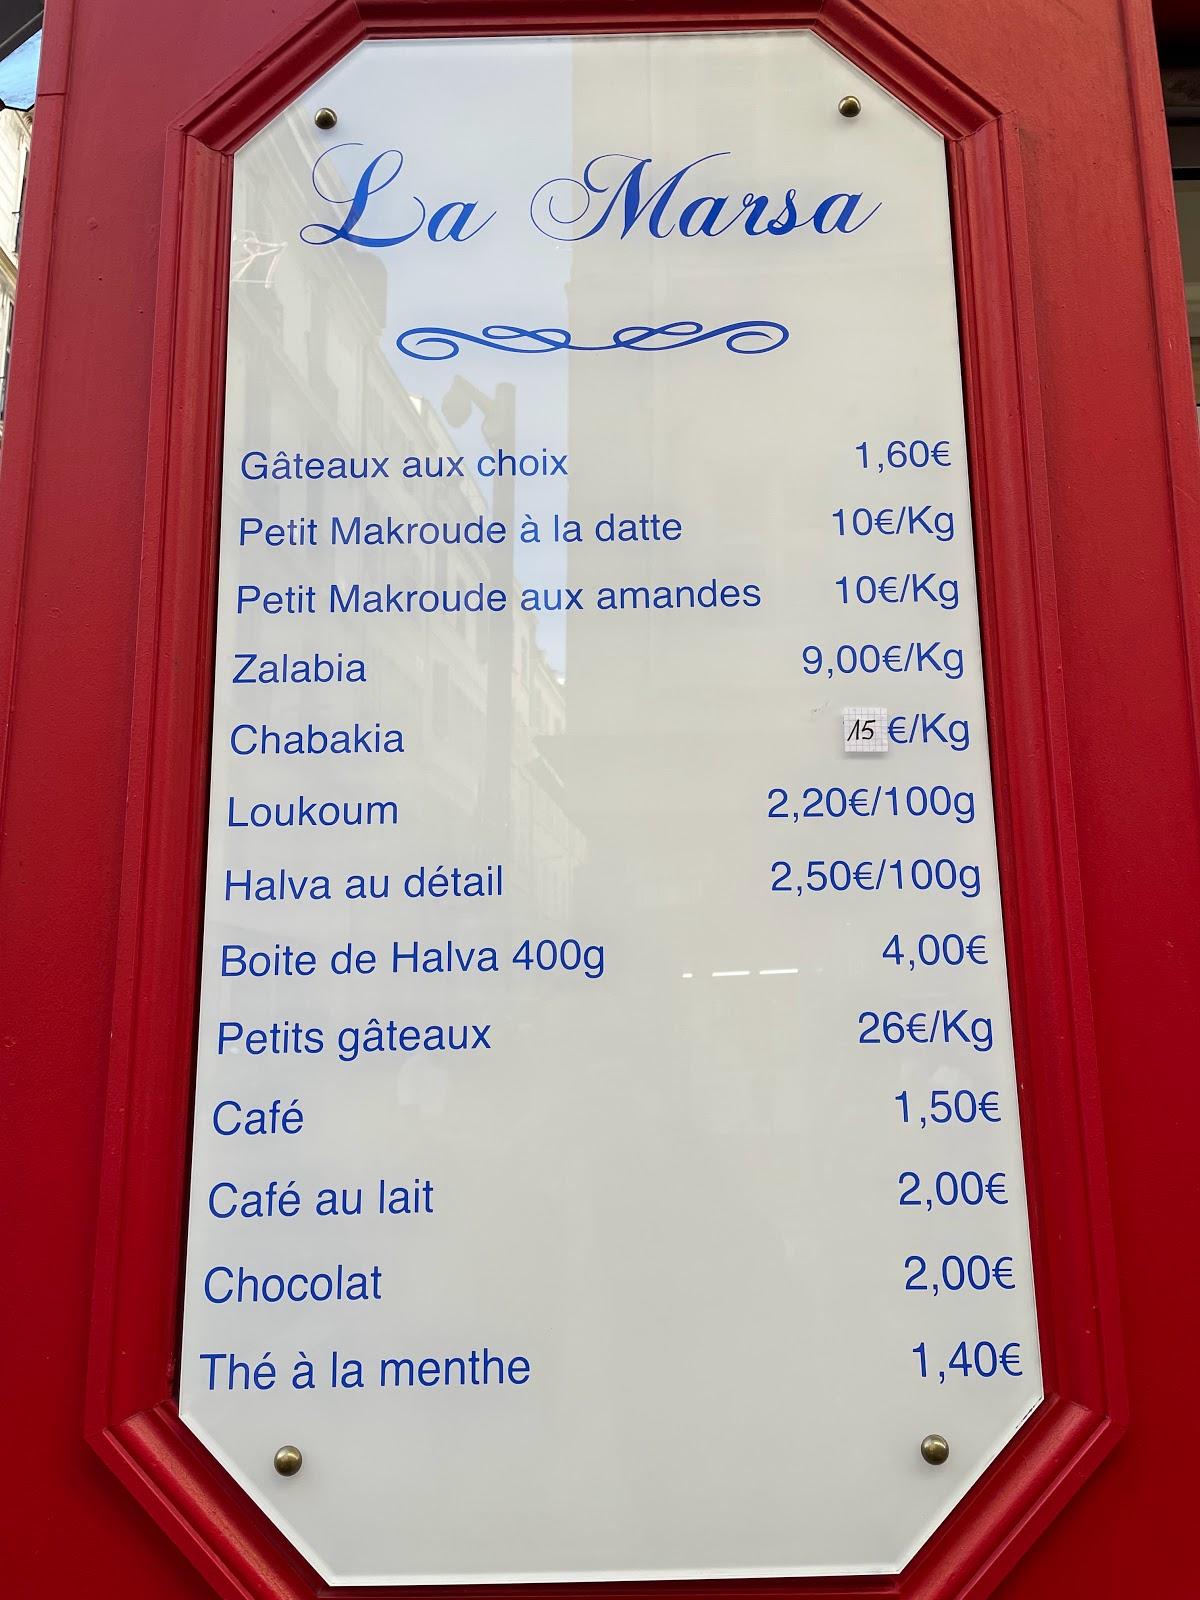 La Marsa
Gâteaux aux choix 1,60€
Petit Makroude à la datte 10€/Kg
Petit Makroude aux amandes 10€/Kg
Zalabia 9,00€/Kg
Chabakia 15 €/Kg
Loukoum 2,20€/100g
Halva au détail 2,50€/100g
Boite de Halva 400g 4,00€
Petits gâteaux 26€/Kg
Café 1,50€
Café au lait 2,00€
Chocolat 2,00€
Thé à la menthe 1,40€